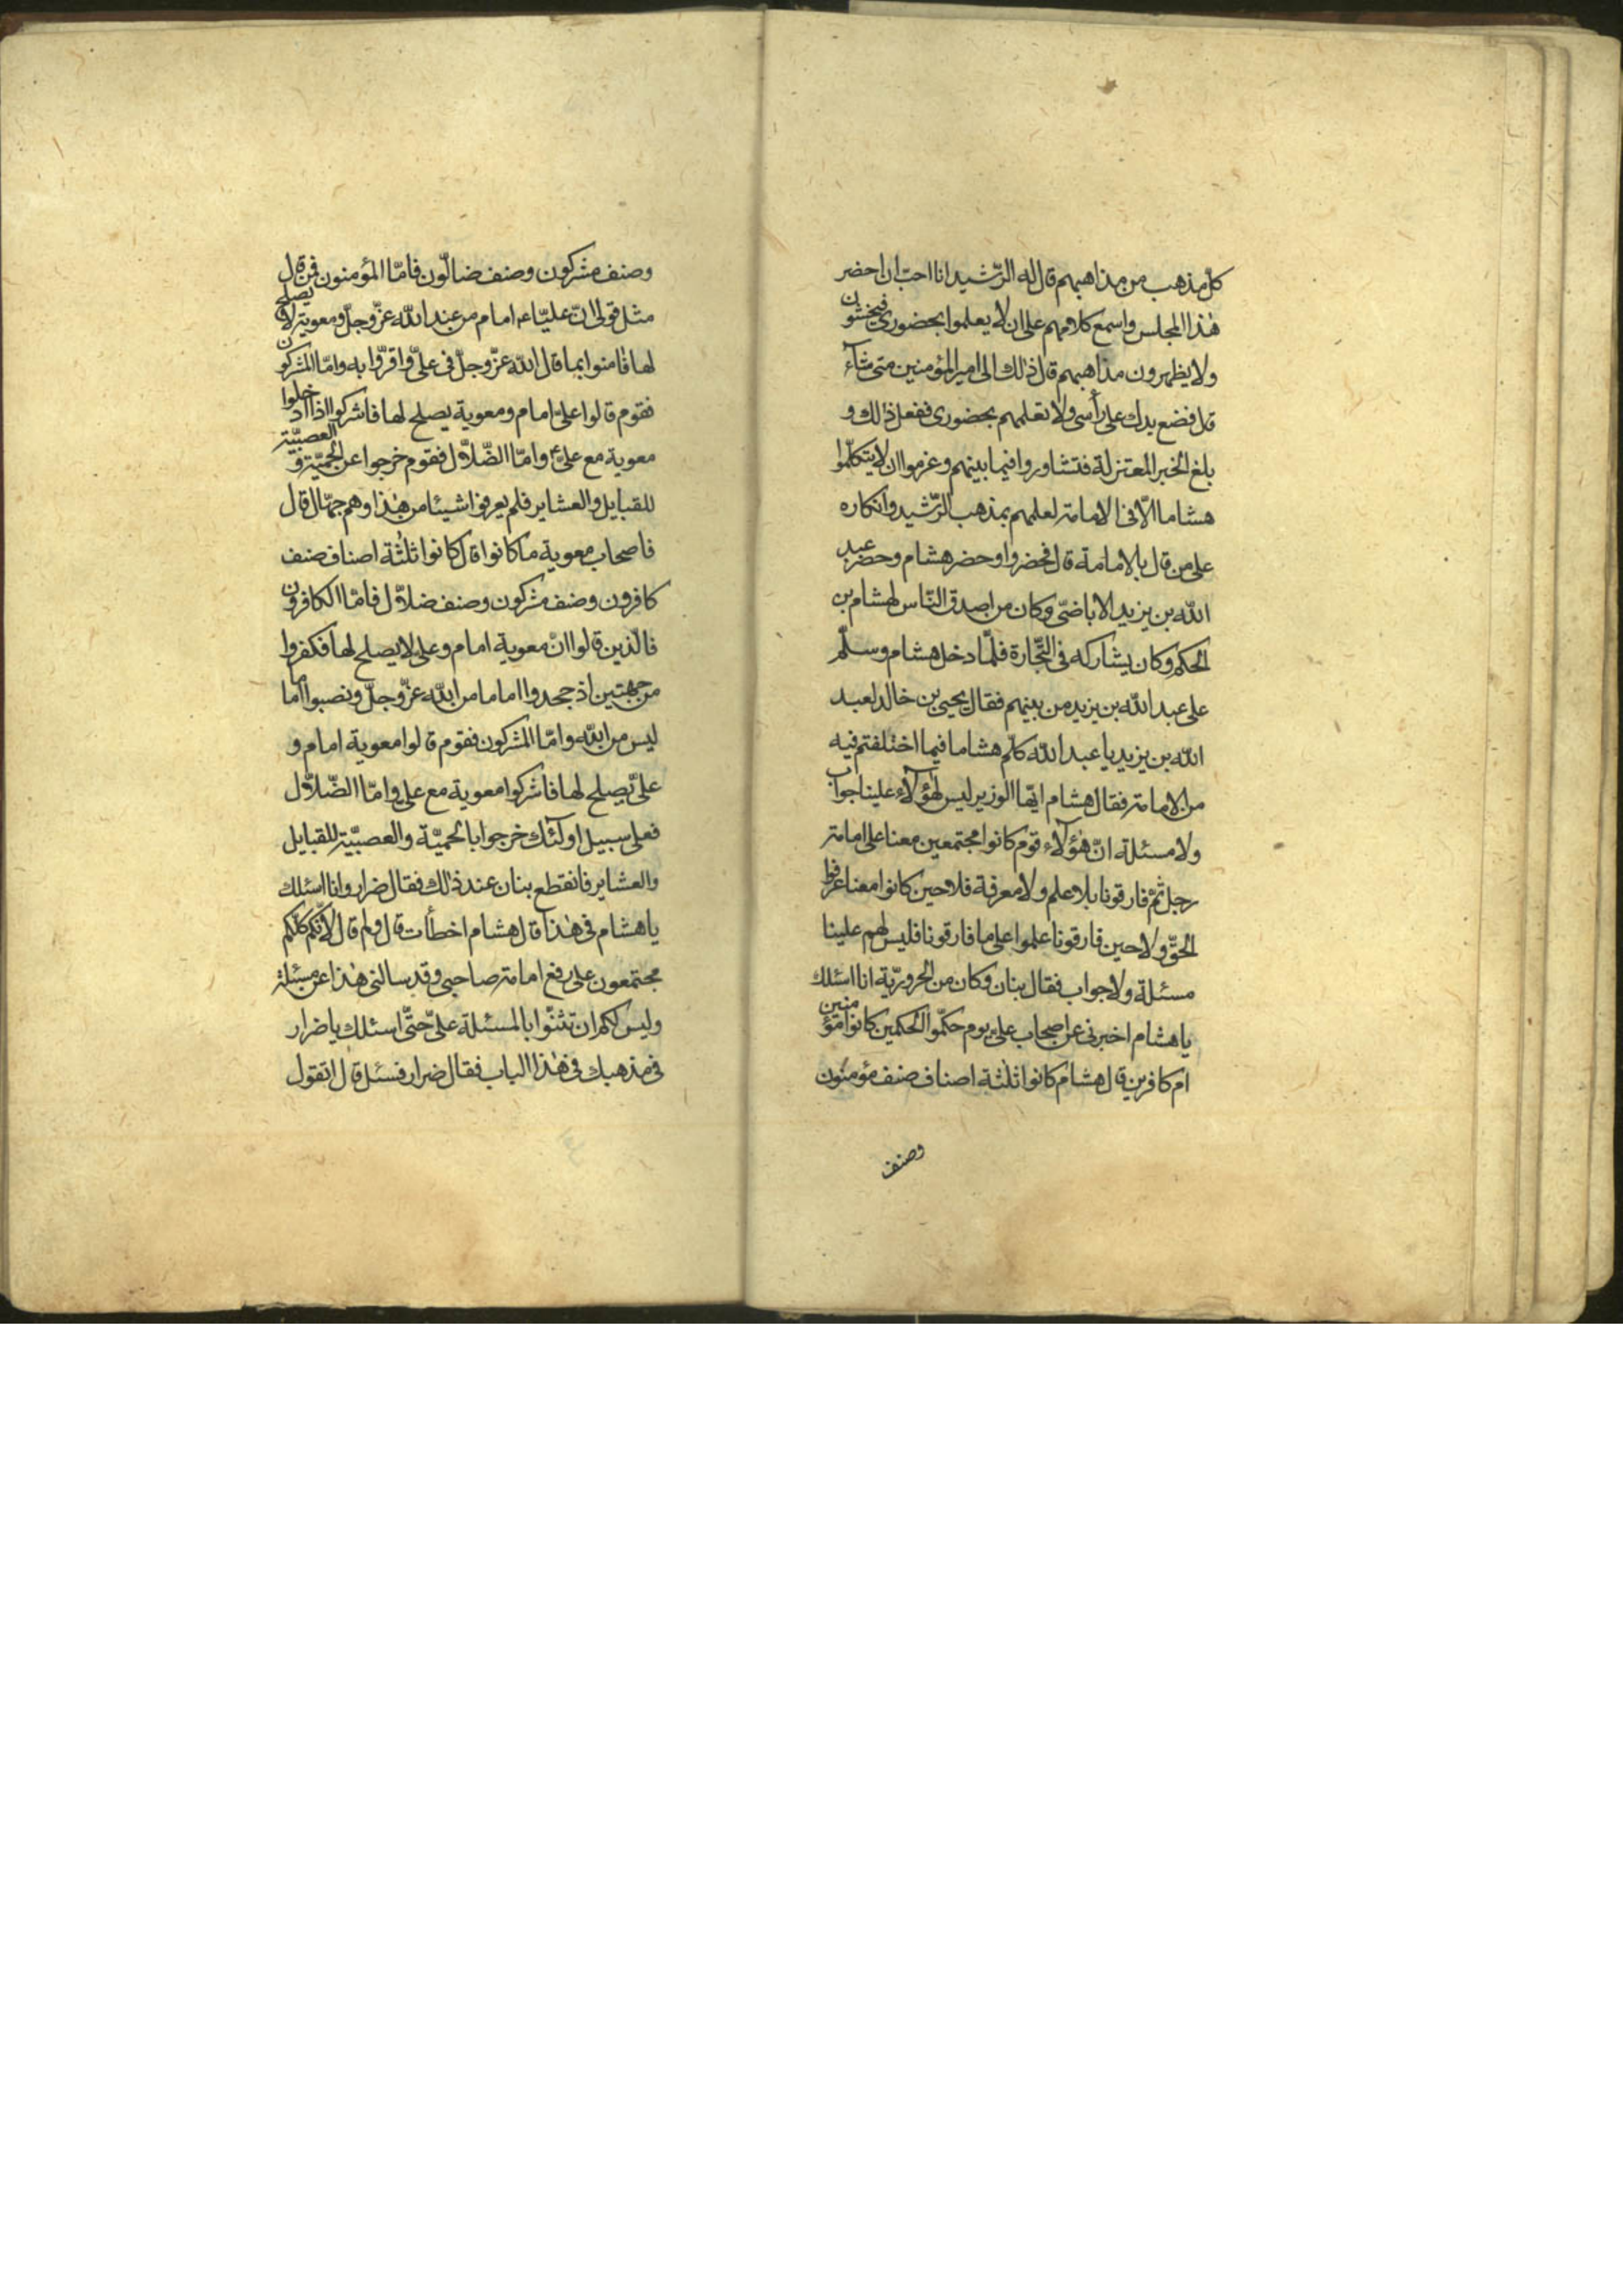 كل مذهب من مذاهبهم قال له الرّشيد انا احبّ ان احضر
هذا المجلس واسمع كلامهم على ان لا يعلموا بحضورى فيحتشون
ولا يظهرون مذاهبهم قال ذلك الى امير المؤمنين متى شآء
قال فضع يدك على رأسى ولا تعلمهم بحضورى ففعل ذلك و
بلغ الخبر المعتزلة فتشاوروا فيما بينهم وعزموا ان لا يتكلّموا
هشاما الّا فى الامامة لعلمهم بمذهب الرّشيد وانكاره
على من قال بالامامة قال فحضروا وحضر هشام وحضر عبد
الله بن يزيد الاباضىّ وكان من اصدق النّاس لهشام بن
الحكم وكان يشاركه فى التّجارة فلمّا دخل هشام وسلّم
على عبد الله بن يزيد من بينهم فقال يحيى بن خالد لعبد
الله بن يزيد يا عبد الله كلّم هشاما فيما اختلفتم فيه
من الامامة فقال هشام ايّها الوزير ليس لهؤلآء علينا جواب
ولا مسئلة انّ هؤلآء قوم كانوا مجتمعين معنا على امامة
رجل ثمّ فارقونا بلا علم ولا معرفة فلا حين كانوا معنا عرفوا
الحقّ ولا حين فارقونا علموا على ما فارقونا فليس لهم علينا
مسئلة ولا جواب فقال بنان وكان من الحروريّة انا اسئلك
يا هشام اخبرنى عن اصحاب علىّ يوم حكّموا الحكمين كانوا مؤمنين
ام كافرين قال هشام كانوا ثلثة اصناف صنف مؤمنون
وصنف
وصنف مشركون وصنف ضالّون فامّا المؤمنون فمن قال
مثل قولى انّ عليّا ع امام من عند الله عزّ وجلّ ومعوية لا يصلح
لها فامنوا بما قال الله عزّ وجلّ فى علىّ واقرّوا به وامّا المشركون
فقوم قالوا علىّ امام ومعوية يصلح لها فاشركوا اذا ادخلوا
معوية مع علىّ ع وامّا الضّلاّل فقوم خرجوا عن الحميّة والعصبيّة
للقبايل والعشاير فلم يعرفوا شيئا من هذا وهم جهّال قال
فاصحاب معوية ما كانوا قال كانوا ثلثة اصناف صنف
كافرون وصنف مشركون وصنف ضلاّل فامّا الكافرون
فالّذين قالوا انّ معوية امام وعلى لا يصلح لها فكفروا
من جهتين اذ جحدوا اماما من الله عزّ وجلّ ونصبوا اماما
ليس من الله وامّا المشركون فقوم قالوا معوية امام و
علىّ يصلح لها فاشركوا معوية مع على وامّا الضّلاّل
فعلى سبيل اولئك خرجوا بالحميّة والعصبيّة للقبايل
والعشاير فانقطع بنان عند ذلك فقال ضرار وانا اسئلك
يا هشام فى هذا قال هشام اخطأت قال ولم قال لانّكم كلّكم
مجتمعون على رفع امامة صاحبى وقد سالنى هذا عن مسئلة
وليس لكم ان تثنّوا بالمسئلة علىّ حتّى اسئلك يا ضرار
فى مذهبك فى هذا الباب فقال ضرار فسئل قال اتقول